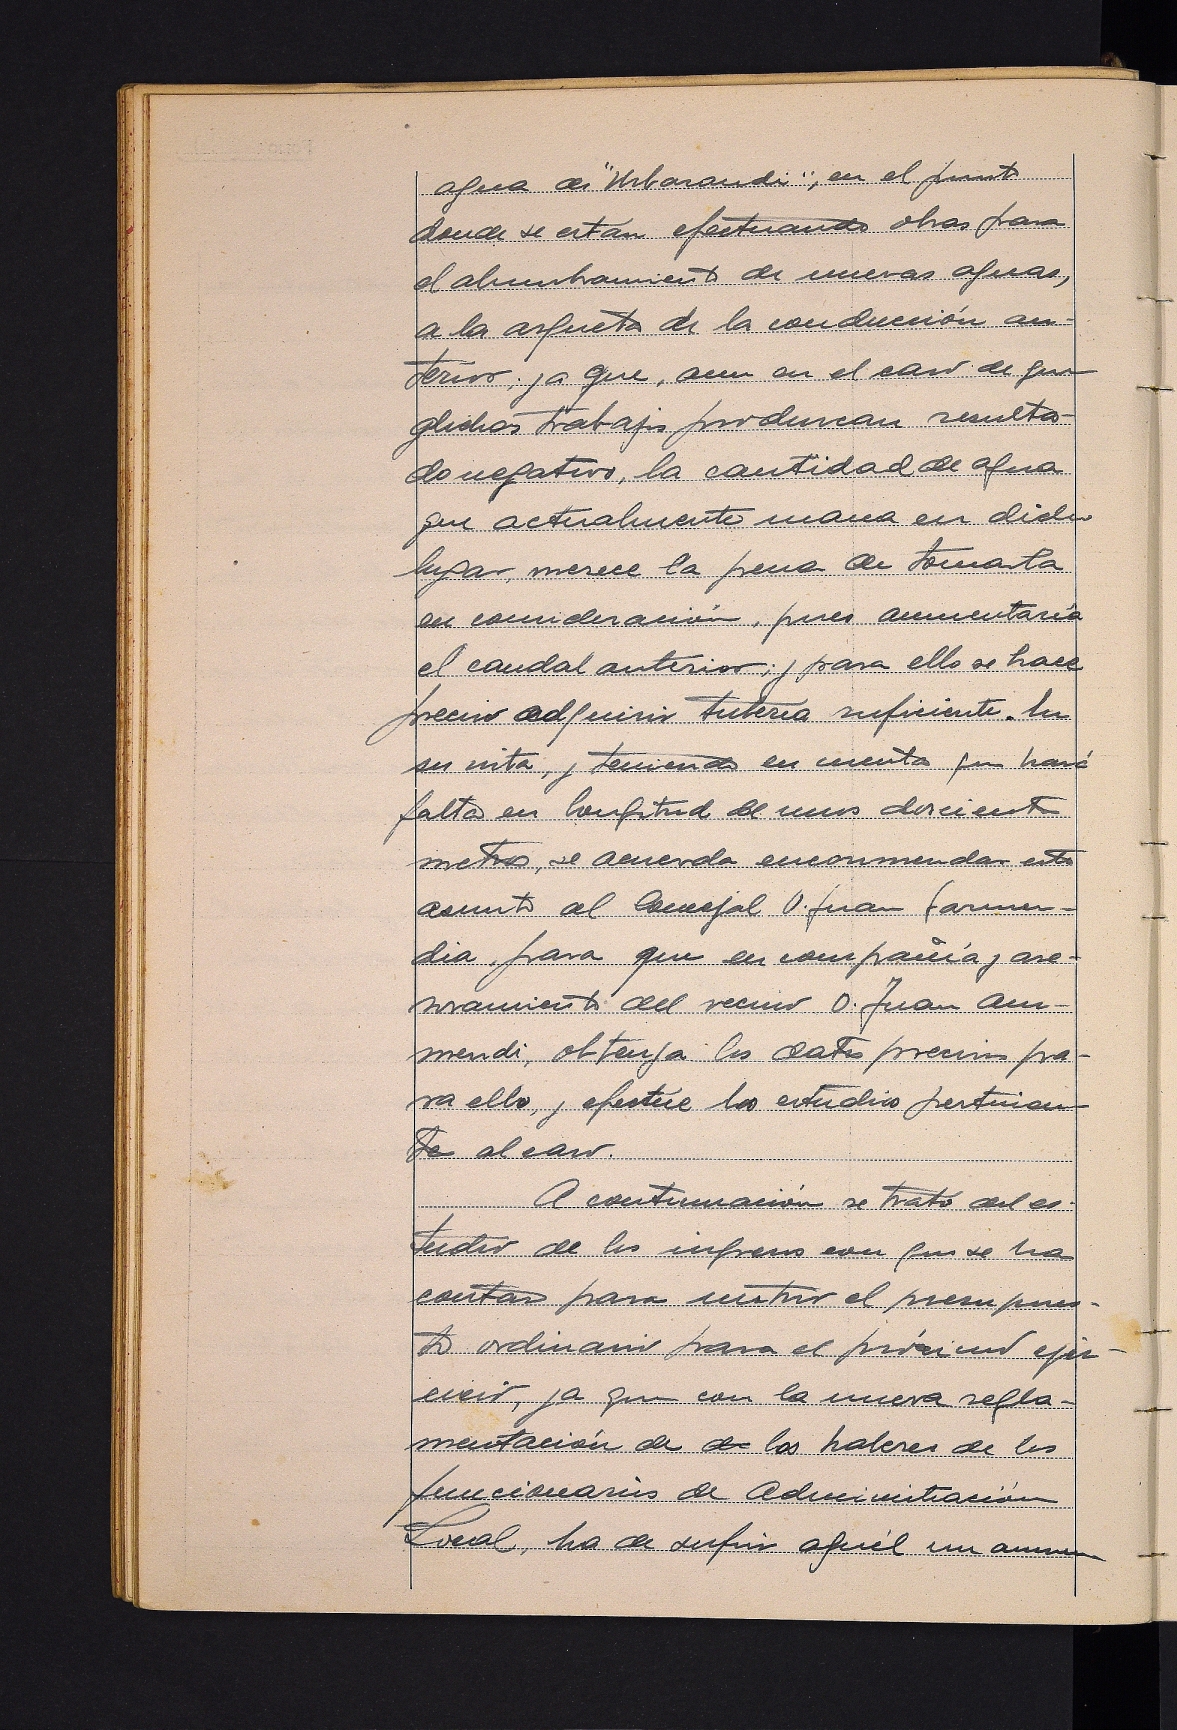 agua de "Urbarandi", en el punto
donde se están efectuando obras para
el alumbramiento de nuevas aguas,
a la arqueta de la conducción an-
terior; ya que, aun en el caso de que
dichos trabajos produzcan resulta-
do negativo, la cantidad de agua
que actualmente mana en dicho
lugar, merece la pena de tomarla
en consideración, pues aumentaría
el caudal anterior; y para ello se hace
preciso adquirir tubería suficiente. En
su vista, y teniendo en cuenta que hará
falta en longitud de unos doscientos
metros, se acuerda encomendar este
asunto al Concejal D. Juan Garmen-
dia, para que en compañía y ase-
soramiento del vecino D. Juan
mendi, obtenga los datos precisos pa-
ra ello, y efectúe los estudios pertinen-
tes al caso.
A continuación se trató del es-
tudio de los ingresos con que se ha
contar para nutrir el presupues-
to ordinario para el próximo ejer-
cicio, ya que con la nueva regla-
mentación de de los haberes de los
funcionarios de Administración
Local, ha de sufrir aquél un aumen